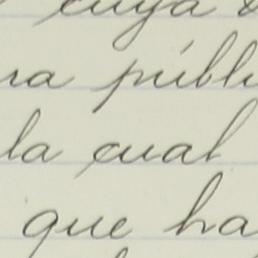 cuya
públi
la cual
que ha